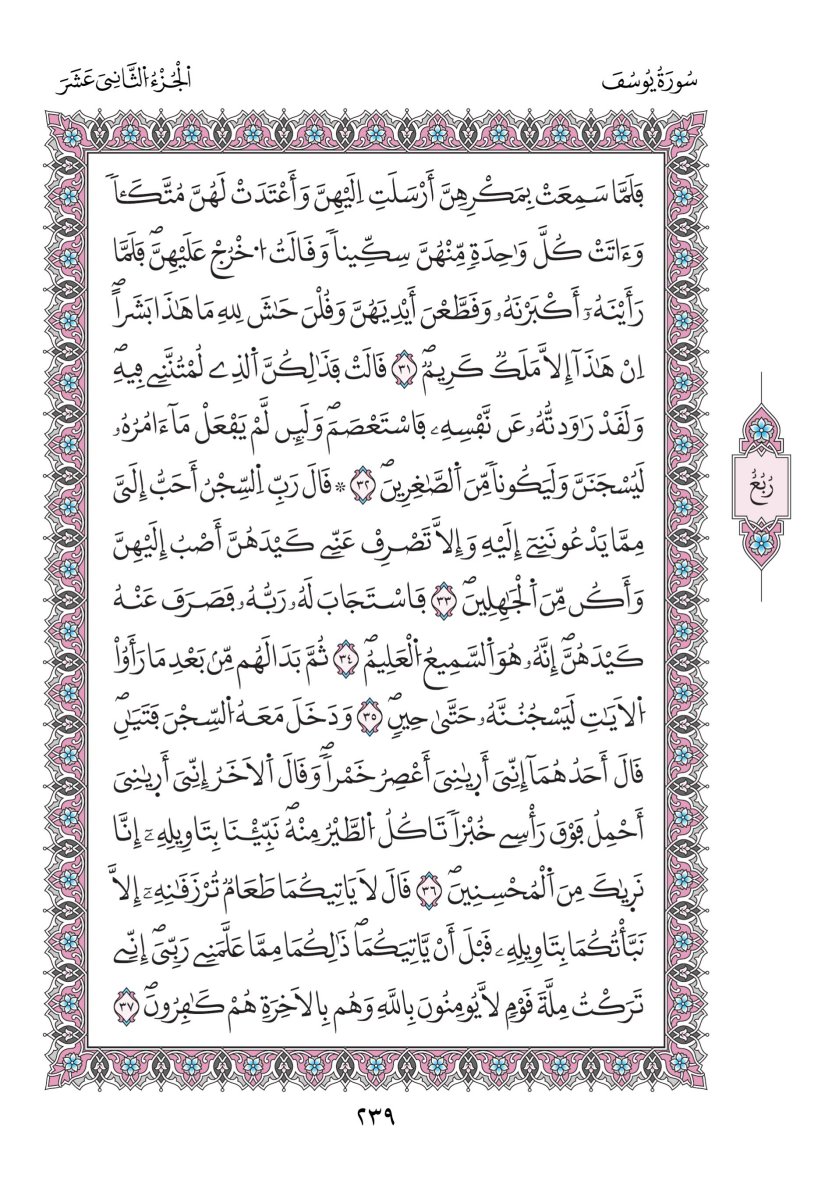 سُورَةُ يُوسُفَ
اَ۬لْجُزْءُ اُ۬لثَّانِيَ عَشَرَ
فَلَمَّا سَمِعَتْ بِمَكْرِهِنَّ أَرْسَلَتِ اِلَيْهِنَّ وَأَعْتَدَتْ لَهُنَّ مُتَّكَـٔاٗ
وَءَاتَتْ كُلَّ وَٰحِدَةٖ مِّنْهُنَّ سِكِّيناٗ وَقَالَتُ اُ۟خْرُجْ عَلَيْهِنَّۖ فَلَمَّا
رَأَيْنَهُۥٓ أَكْبَرْنَهُۥ وَقَطَّعْنَ أَيْدِيَهُنَّ وَقُلْنَ حَٰشَ لِلهِ مَا هَٰذَا بَشَراًۖ
اِنْ هَٰذَآ إِلَّا مَلَكٞ كَرِيمٞۖ ٣١ قَالَتْ فَذَٰلِكُنَّ اَ۬لذِے لُمْتُنَّنِے فِيهِۖ
وَلَقَدْ رَٰوَدتُّهُۥ عَن نَّفْسِهِۦ فَاسْتَعْصَمَۖ وَلَئِن لَّمْ يَفْعَلْ مَآ ءَامُرُهُۥ
لَيُسْجَنَنَّ وَلَيَكُوناٗ مِّنَ اَ۬لصَّٰغِرِينَۖ ٣٢ ۞ قَالَ رَبِّ اِ۬لسِّجْنُ أَحَبُّ إِلَيَّ
مِمَّا يَدْعُونَنِيٓ إِلَيْهِ وَإِلَّا تَصْرِفْ عَنِّے كَيْدَهُنَّ أَصْبُ إِلَيْهِنَّ
وَأَكُن مِّنَ اَ۬لْجَٰهِلِينَۖ ٣٣ فَاسْتَجَابَ لَهُۥ رَبُّهُۥ فَصَرَفَ عَنْهُ
كَيْدَهُنَّۖ إِنَّهُۥ هُوَ اَ۬لسَّمِيعُ اُ۬لْعَلِيمُۖ ٣٤ ثُمَّ بَدَا لَهُم مِّنۢ بَعْدِ مَا رَأَوُاْ
اُ۬لَايَٰتِ لَيَسْجُنُنَّهُۥ حَتَّىٰ حِينٖۖ ٣٥ وَدَخَلَ مَعَهُ اُ۬لسِّجْنَ فَتَيَٰنِۖ
قَالَ أَحَدُهُمَآ إِنِّيَ أَرٜيٰنِيَ أَعْصِرُ خَمْراٗۖ وَقَالَ اَ۬لَاخَرُ إِنِّيَ أَرٜيٰنِيَ
أَحْمِلُ فَوْقَ رَأْسِے خُبْزاٗ تَاكُلُ اُ۬لطَّيْرُ مِنْهُۖ نَبِّئْنَا بِتَاوِيلِهِۦٓ إِنَّا
نَرٜيٰكَ مِنَ اَ۬لْمُحْسِنِينَۖ ٣٦ قَالَ لَا يَاتِيكُمَا طَعَامٞ تُرْزَقَٰنِهِۦٓ إِلَّا
نَبَّأْتُكُمَا بِتَاوِيلِهِۦ قَبْلَ أَنْ يَّاتِيَكُمَاۖ ذَٰلِكُمَا مِمَّا عَلَّمَنِے رَبِّيَۖ إِنِّے
تَرَكْتُ مِلَّةَ قَوْمٖ لَّا يُومِنُونَ بِاللَّهِ وَهُم بِالَاخِرَةِ هُمْ كَٰفِرُونَۖ ٣٧
رُبُعُ
٢٣٩